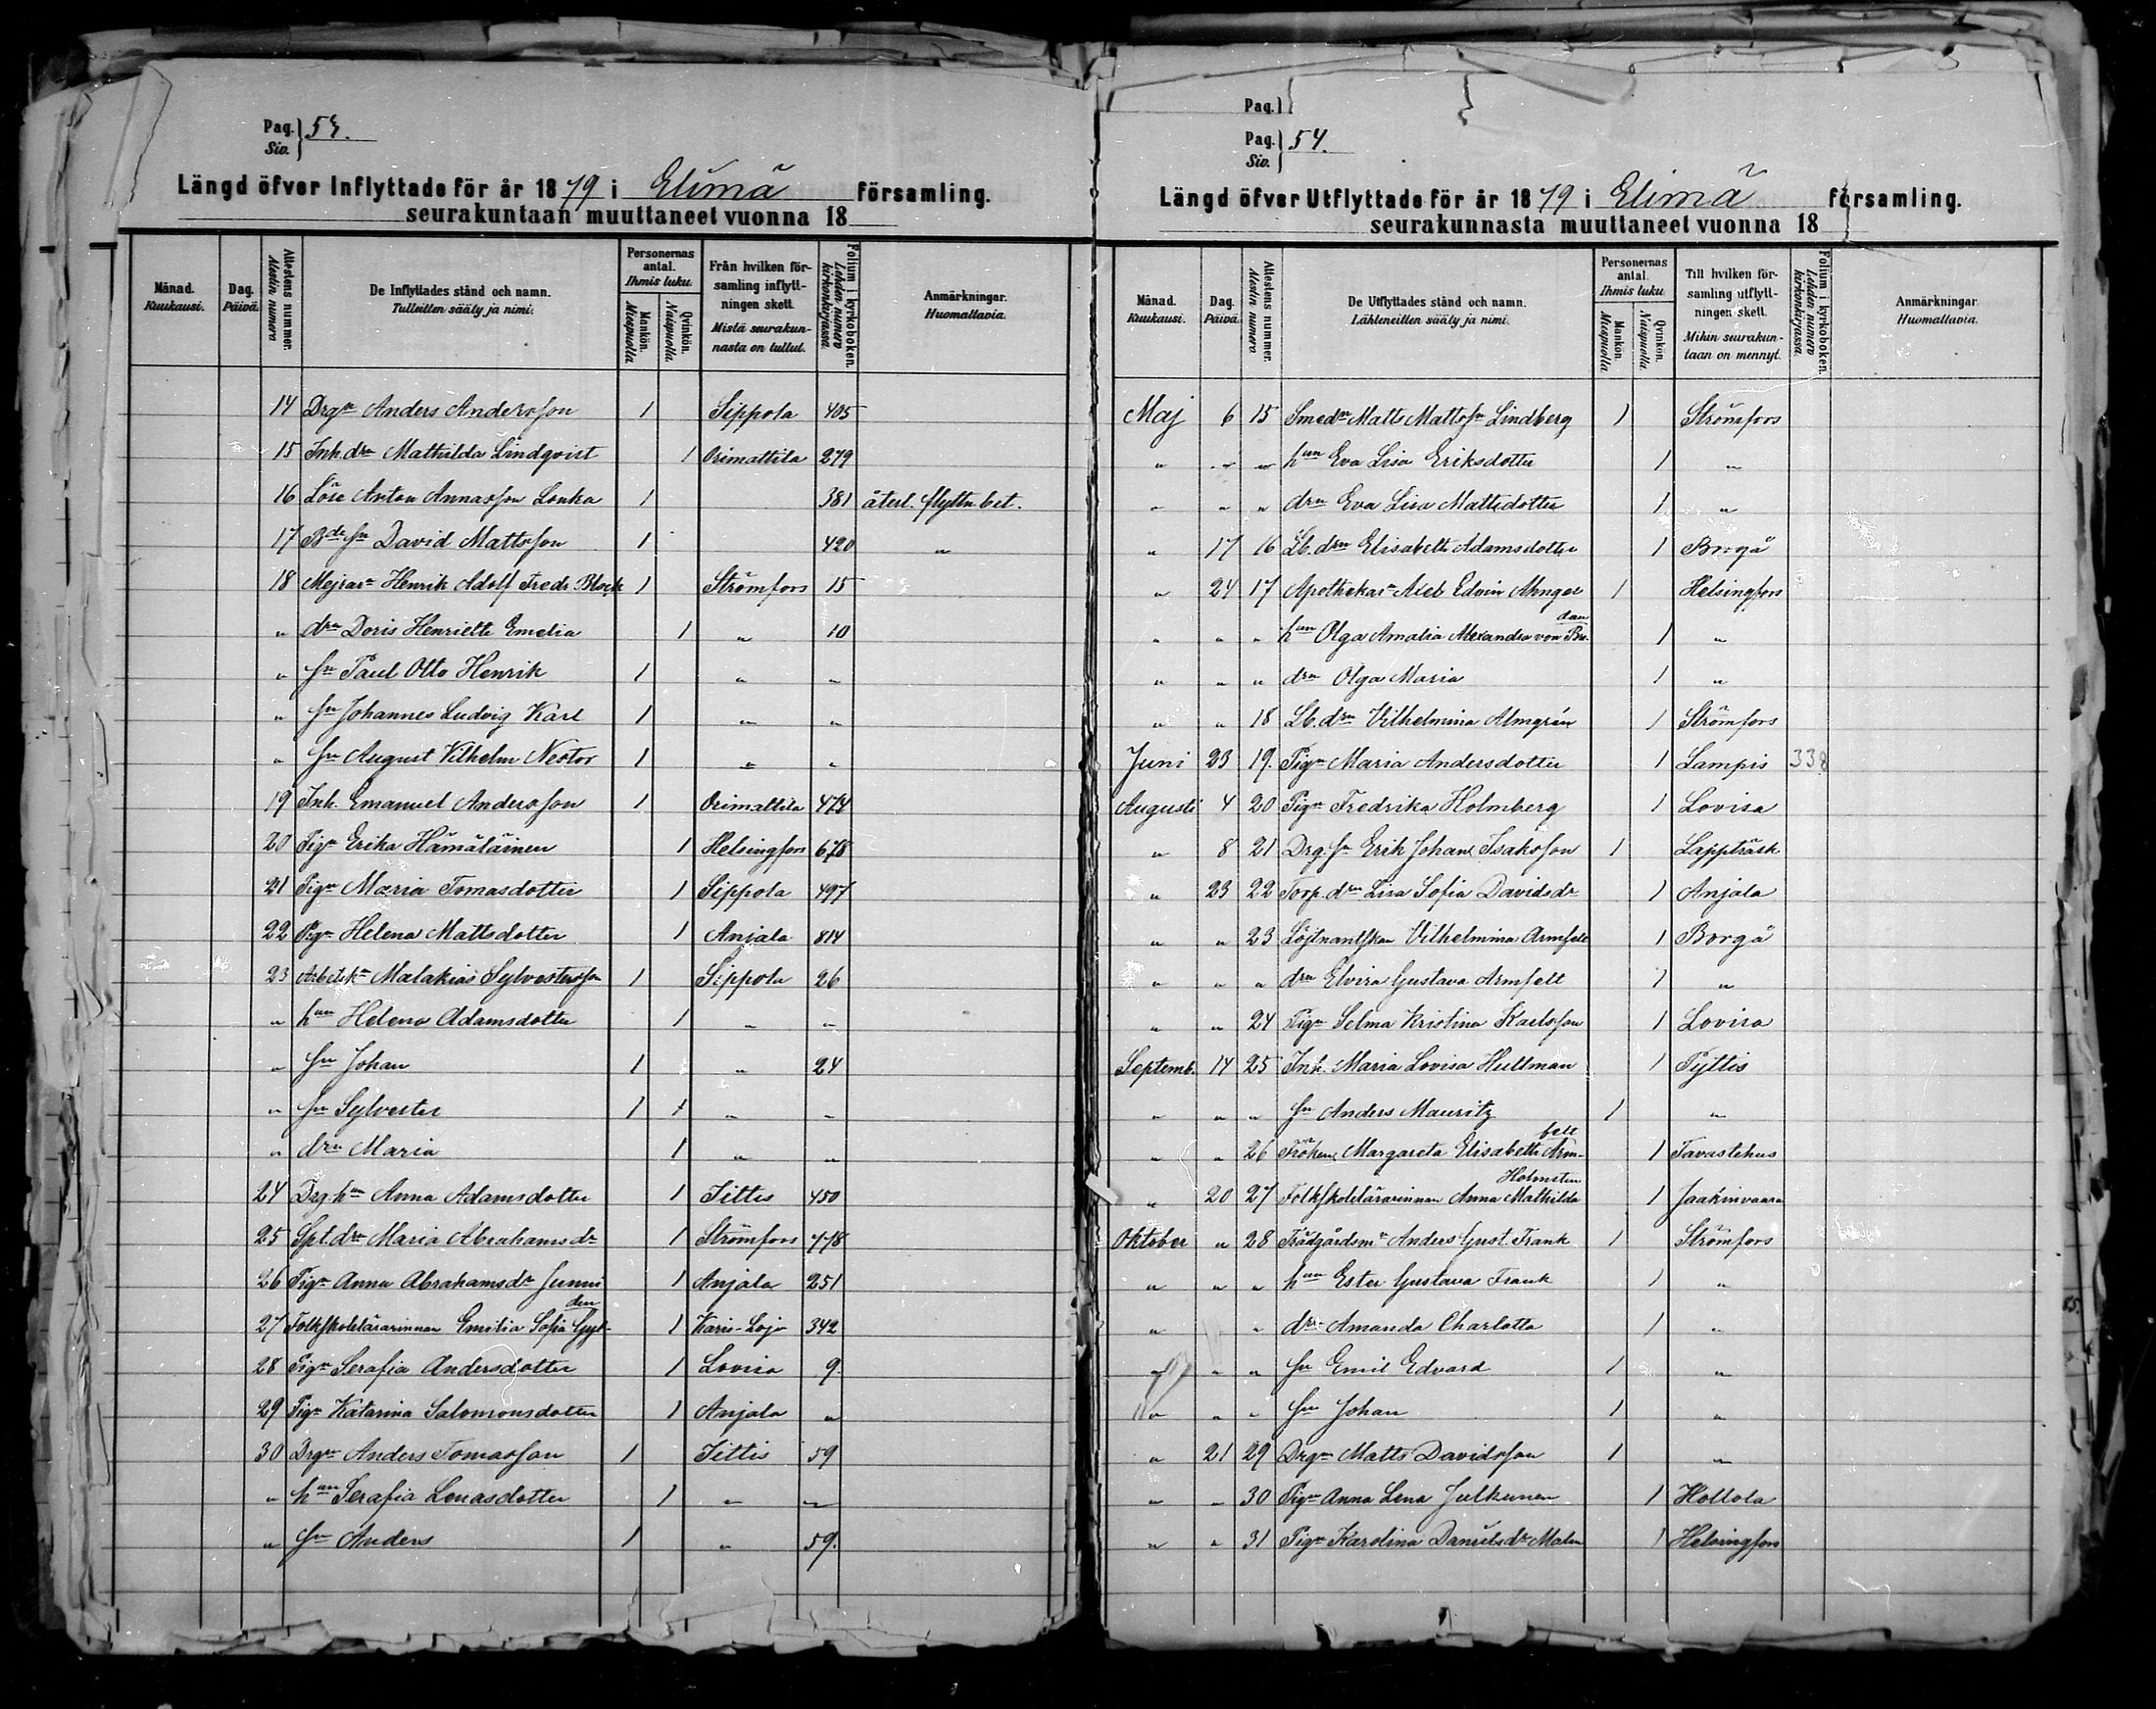 Pag. 53.
Siv.
Längd öfver Inflyttade för år 1879 i Elimä församling.
seurakuntaan muuttaneet vuonna 18
Månad. Kuukausi.
Dag. Päivä.
Attestens nummer. Alestin numero
De Inflyttades stånd och namn. Tulleitten sääty ja nimi.
Personernas antal. Ihmis luku.
Mankön. Miespuolia
Qvinkön. Naispuolia
Från hvilken församling inflyttningen skett. Mistä seurakunnasta on tullut.
Folium i kyrkoboken. Lehden numero kirkonkirjassa.
Anmärkningar. Huomattavia.
14 Drgn Anders Andersson 1 Sippola 405
15 Inh. drn Mathilda Lindqvist 1 Orimattila 279
16 Löse Anton Annasson Lonka 1 381 återl. flyttn. bet.
17 Bde sn David Mattsson 1 420 "
18 Mejrarn Henrik Adolf Fredr. Block 1 Strömfors 15
" drn Doris Henriette Emelia 1 " 10
" sn Paul Otto Henrik 1 " "
" sn Johannes Ludvig Karl 1 " "
" sn August Vilhelm Nestor 1 " "
19 Inh. Emanuel Andersson 1 Orimattila 474
20 Pign Erika Hämäläinen 1 Helsingfors 678
21 Pign Maria Tomasdotter 1 Sippola 497
22 Pign Helena Mattsdotter 1 Anjala 814
23 Arbetsk. Malakias Sylvestersson 1 Sippola 26
" hun Helena Adamsdotter 1 " "
" sn Johan 1 " 24
" sn Sylvester 1 1 " "
" drn Maria 1 " "
24 Drg. hun Anna Adamsdotter 1 Iittis 450
25 Spl. drn Maria Abrahamsdr 1 Strömfors 478
26 Pign Anna Abrahamsdr Junni 1 Anjala 251
27 Folkskolelärarinnan Emilia Sofia Gylden 1 Karis-Lojo 342
28 Pign Serafia Andersdotter 1 Lovisa 9.
29 Pign Katarina Salomonsdotter 1 Anjala "
30 Drgn Anders Tomasson 1 Iittis 59
" hun Serafia Lenasdotter 1 " "
" sn Anders 1 " 59.
Pag.
Pag. 54.
Siv.
Längd öfver Utflyttade för år 1879 i Elimä församling.
seurakunnasta muuttaneet vuonna 18
Månad. Kuukausi.
Dag. Päivä
Attestens nummer. Alestin numero
De Utflyttades stånd och namn. Lähteneitten sääty ja nimi.
Personernas antal. Ihmis luku
Mankön. Miespuolia
Qvinkön. Naispuolia
Till hvilken församling utflyttningen skett. Mihin seurakuntaan on mennyt.
Folium i kyrkoboken. Lehden numero kirkonkirjassa.
Anmärkningar. Huomattavia.
Maj 6 15 Smedn Matts Mattsson Lindberg 1 Strömfors
" " " hun Eva Lisa Eriksdotter 1 "
" " " drn Eva Lisa Mattsdotter 1 "
" 17 16 Lb. drn Elisabeth Adamsdotter 1 Borgå
" 24 17 Apothekarn Axel Edvin Ahnger 1 Helsingfors
" " " hun Olga Amalia Alexandra von 1 "
" " " drn Olga Maria 1 "
" " 18 Lb. drn Vilhelmina Almgrén 1 Strömfors
Juni 23 19. Pign Maria Andersdotter 1 Lampis 338
Augusti 4 20 Pign Fredrika Holmberg 1 Lovisa
" 8 21 Drg. sn Erik Johan Isaksson 1 Lappträsk
" 23 22 Torp. drn Lisa Sofia Davidsdr 1 Anjala
" " 23 Löjtnantskan Vilhelmina Armfelt 1 Borgå
" " " drn Elvira Gustava Armfelt 1 "
" " 24 Pign Selma Kristina Karlsson 1 Lovisa
Septemb. 14 25 Inh. Maria Lovisa Hultman 1 Pyttis
" " " sn Anders Mauritz 1 "
" " 26 Fröken Margareta Elisabeth Armfelt 1 Tavastehus
" 20 27 Folkskolelärarinnan Anna Mathilda Holmsten 1 Jaakinvaara
Oktober " 28 Trädgårdsmn Anders Gust. Frank 1 Strömfors
" " " hun Ester Gustava Frank 1 "
" " drn Amanda Charlotta 1 "
" " " sn Emil Edvard 1 "
" " " sn Johan 1 "
" 21 29 Drgn Matts Davidsson 1 "
" " 30 Pign Anna Lena Julkunen 1 Hollola
" " 31 Pign Karolina Danielsdr Malm 1 Helsingfors